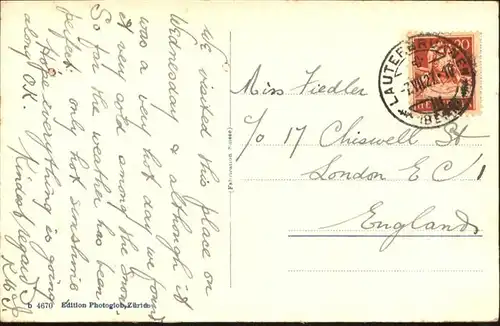 We visited this place on
Wednesday & although it
was a very hot day we found
it very cold among the snow.
So far the weather has been
perfect only hot sunshine
Hope everything is going
along O.K. Kindest regards
Miss Fiedler
c/o 17 Chiswell St
London E C 1
England
LAUTERBRUNNEN
(BERN)
20
b 4670 Edition Photoglob, Zürich